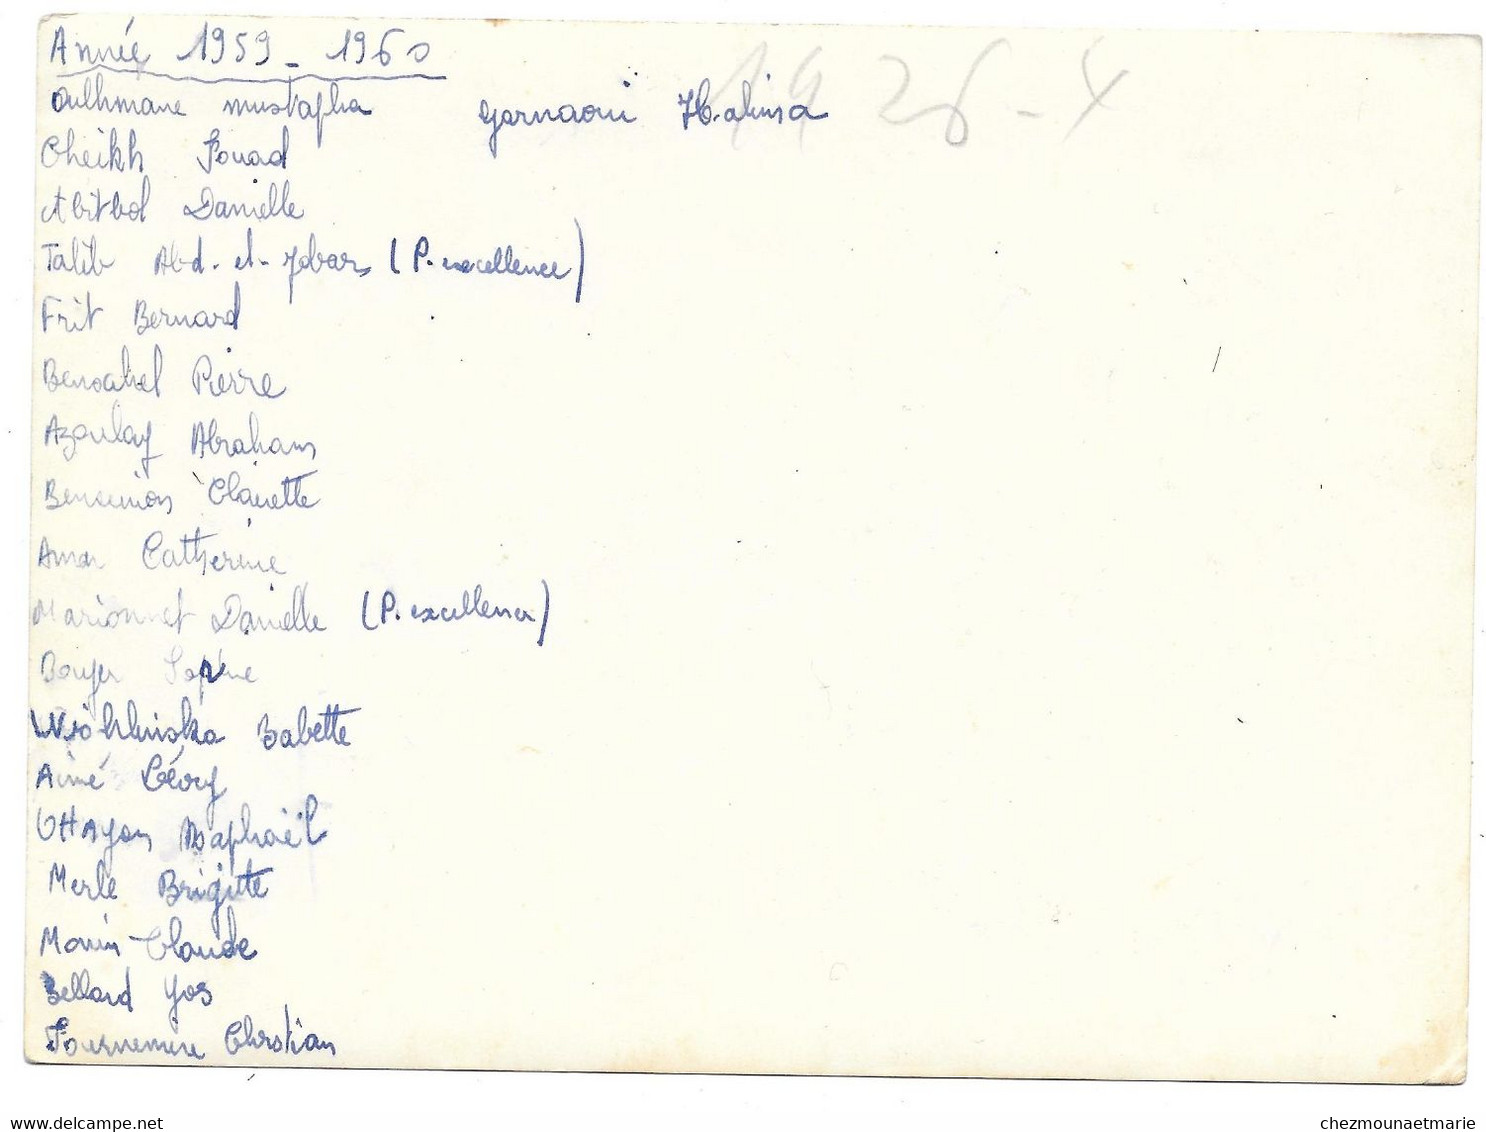 Année 1959 - 1960
Oulhmane mustapha garnaoui Halima
1926 - X
Cheikh Fouad
Abitbol Danielle
Talib Abd-el-Jobar (P. excellence)
Frit Bernard
Bensahel Pierre
Azoulay Abraham
Bensimon Clairette
Amar Catherine
Marionnet Danielle (P. excellence)
Boyer Sophie
Babette
Aimé Lévy
Ottayon Raphaël
Merle Brigitte
Monin Claude
Bellard Yos
Fournemine Chrstian
www.delcampe.net
chezmounaetmarie